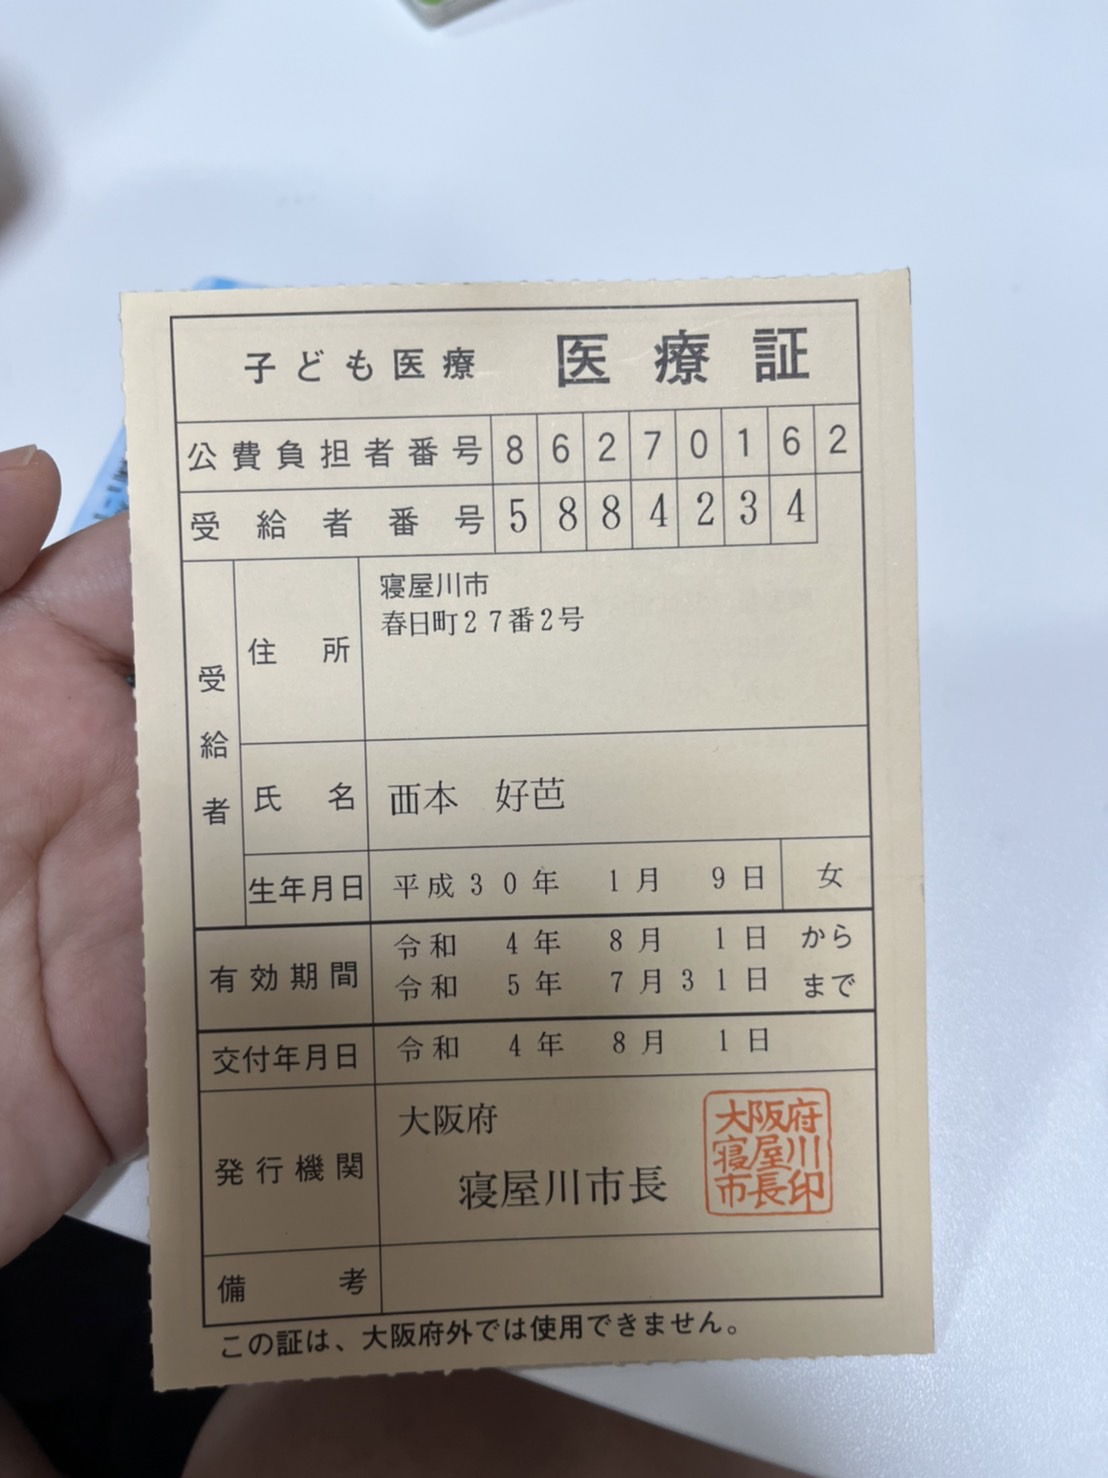 子ども医療 医療証
公費負担者番号 86270162
受給者番号 5884234
受給者
住所 寝屋川市
春日町27番2号
氏名 西本 好芭
生年月日 平成30年 1月 9日 女
有効期間 令和 4年 8月 1日 から
令和 5年 7月31日 まで
交付年月日 令和 4年 8月 1日
発行機関 大阪府
寝屋川市長
大阪府
寝屋川
市長印
備考
この証は、大阪府外では使用できません。